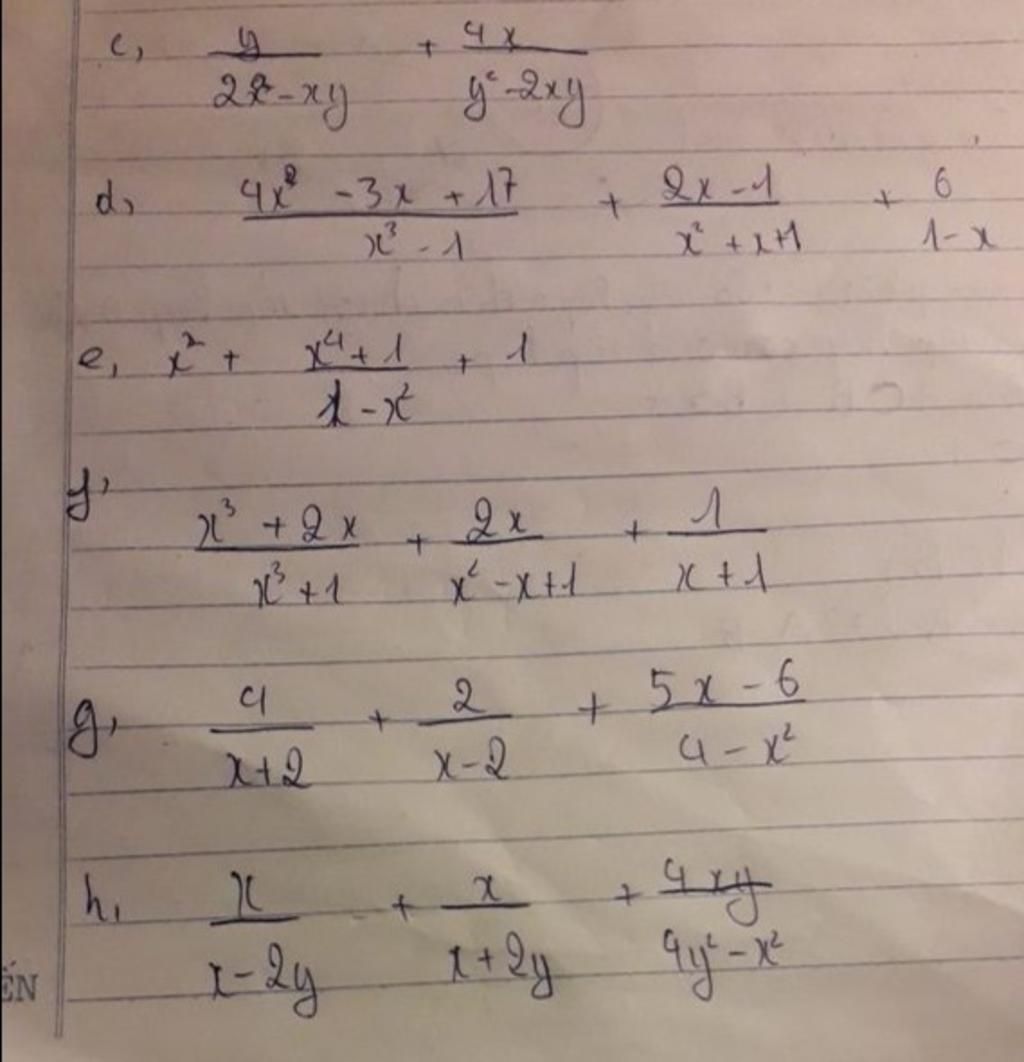 c, y/(2x²-xy) + 4x/(y²-2xy)
d, (4x²-3x+17)/(x³-1) + (2x-1)/(x²+x+1) + 6/(1-x)
e, x² + (x⁴+1)/(1-x²) + 1
f, (x³+2x)/(x³+1) + 2x/(x²-x+1) + 1/(x+1)
g, 4/(x+2) + 2/(x-2) + (5x-6)/(4-x²)
h, x/(x-2y) + x/(x+2y) + 4xy/(4y²-x²)
ẾN